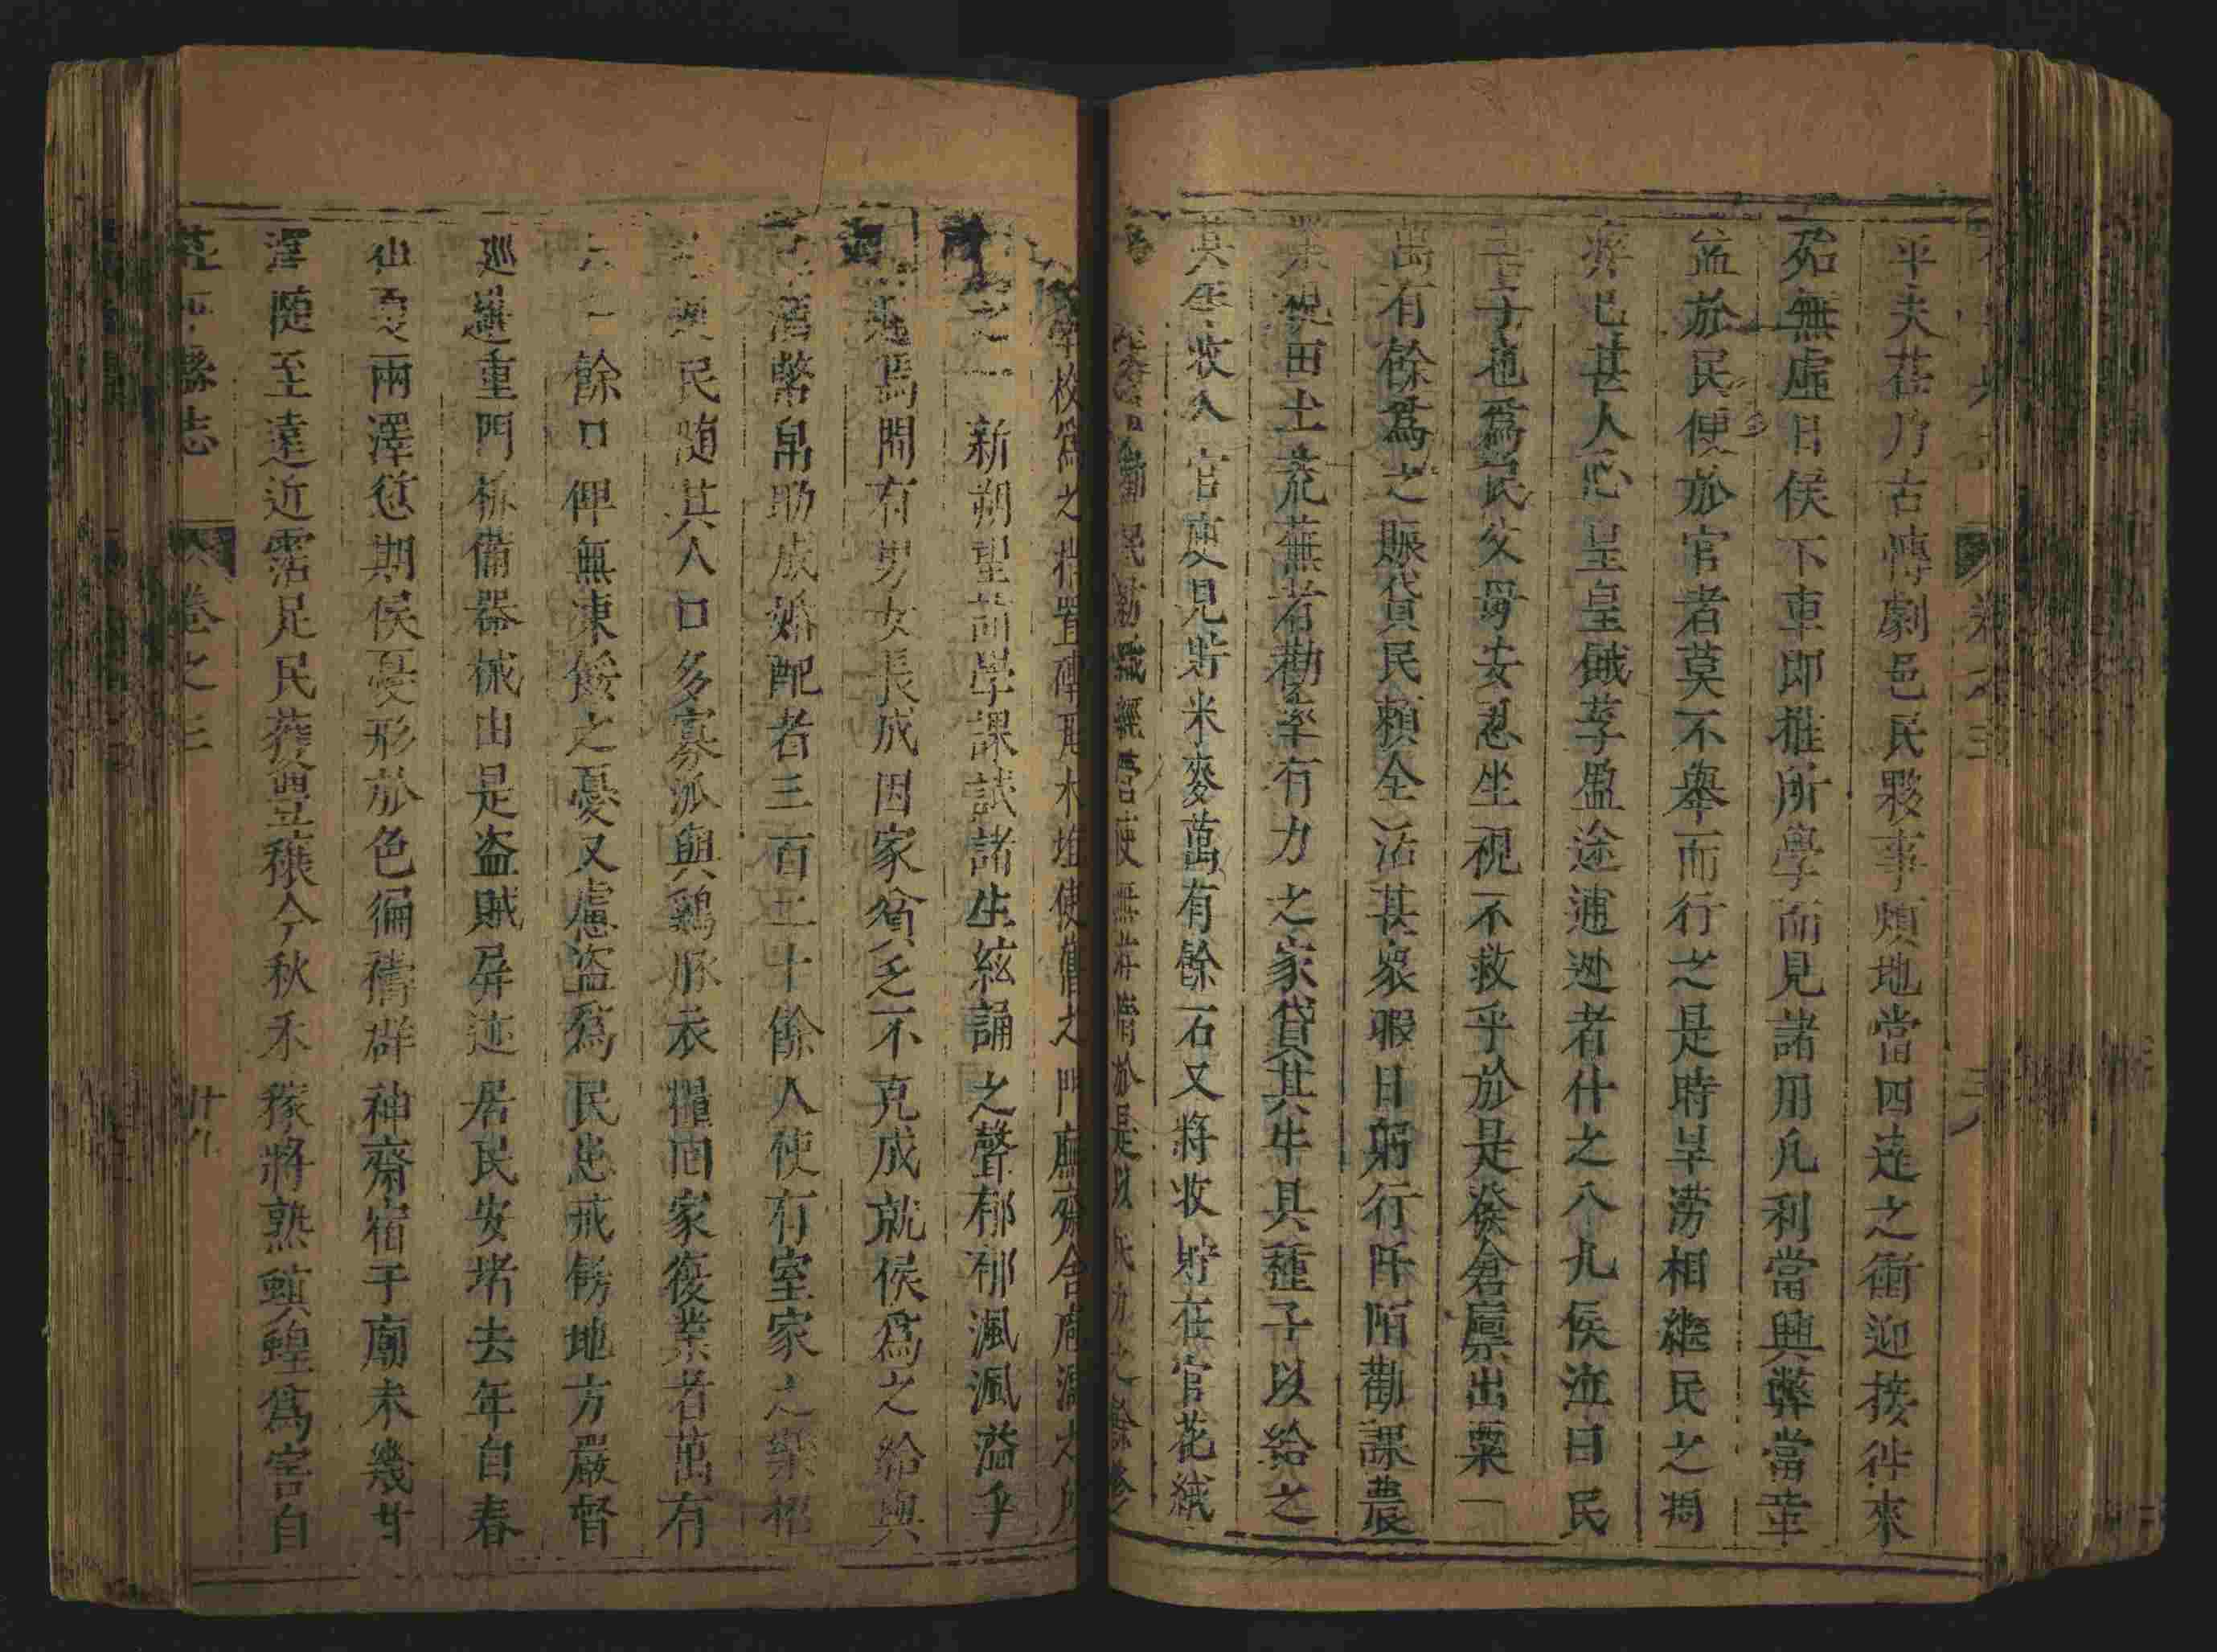 平夫茌乃古博劇邑民夥事煩地當四達之衝迎接徃來
殆無虛日侯下車即推所學而見諸用凡利當興弊當革
益於民便於官者莫不舉而行之是時旱澇相繼民之凋
瘵已甚人心皇皇餓莩盈途逋逃者什之八九侯泣曰民
吾子也爲民父母安忍坐視不救乎於是發倉廩出粟一
萬有餘爲之賑貸民賴全活甚衆暇日躬行阡陌勸課農
業視田土荒蕪者勸率有力之家貸其牛具種子以給之
其年收入官廋見貯米麥萬有餘石又將收貯在官花絨
民紡織經營使無游惰於是以
學校爲之措置磚瓦木植使舊之門廡齋舍
新朔望詣學課試諸生絃誦之聲郁郁渢渢溢乎
焉間有男女長成因家貧乏不克成就侯爲之給與
酒幣帛助成婚配者三百二十餘人使有室家之樂招
民随其人口多寡派與鷄豚衣糧囬家復業者萬有
餘口俾無凍餒之憂又慮盗爲民患戒飭地方嚴督
廵邏重門柝備器械由是盗賊屏迹居民安堵去年自春
徂夏雨澤愆期侯憂形於色徧禱群神齋宿于廟未幾甘
澤随至遠近霑足民獲豐穰今秋禾稼將熟螟蝗爲害自
茌平縣志 卷之三 廿九